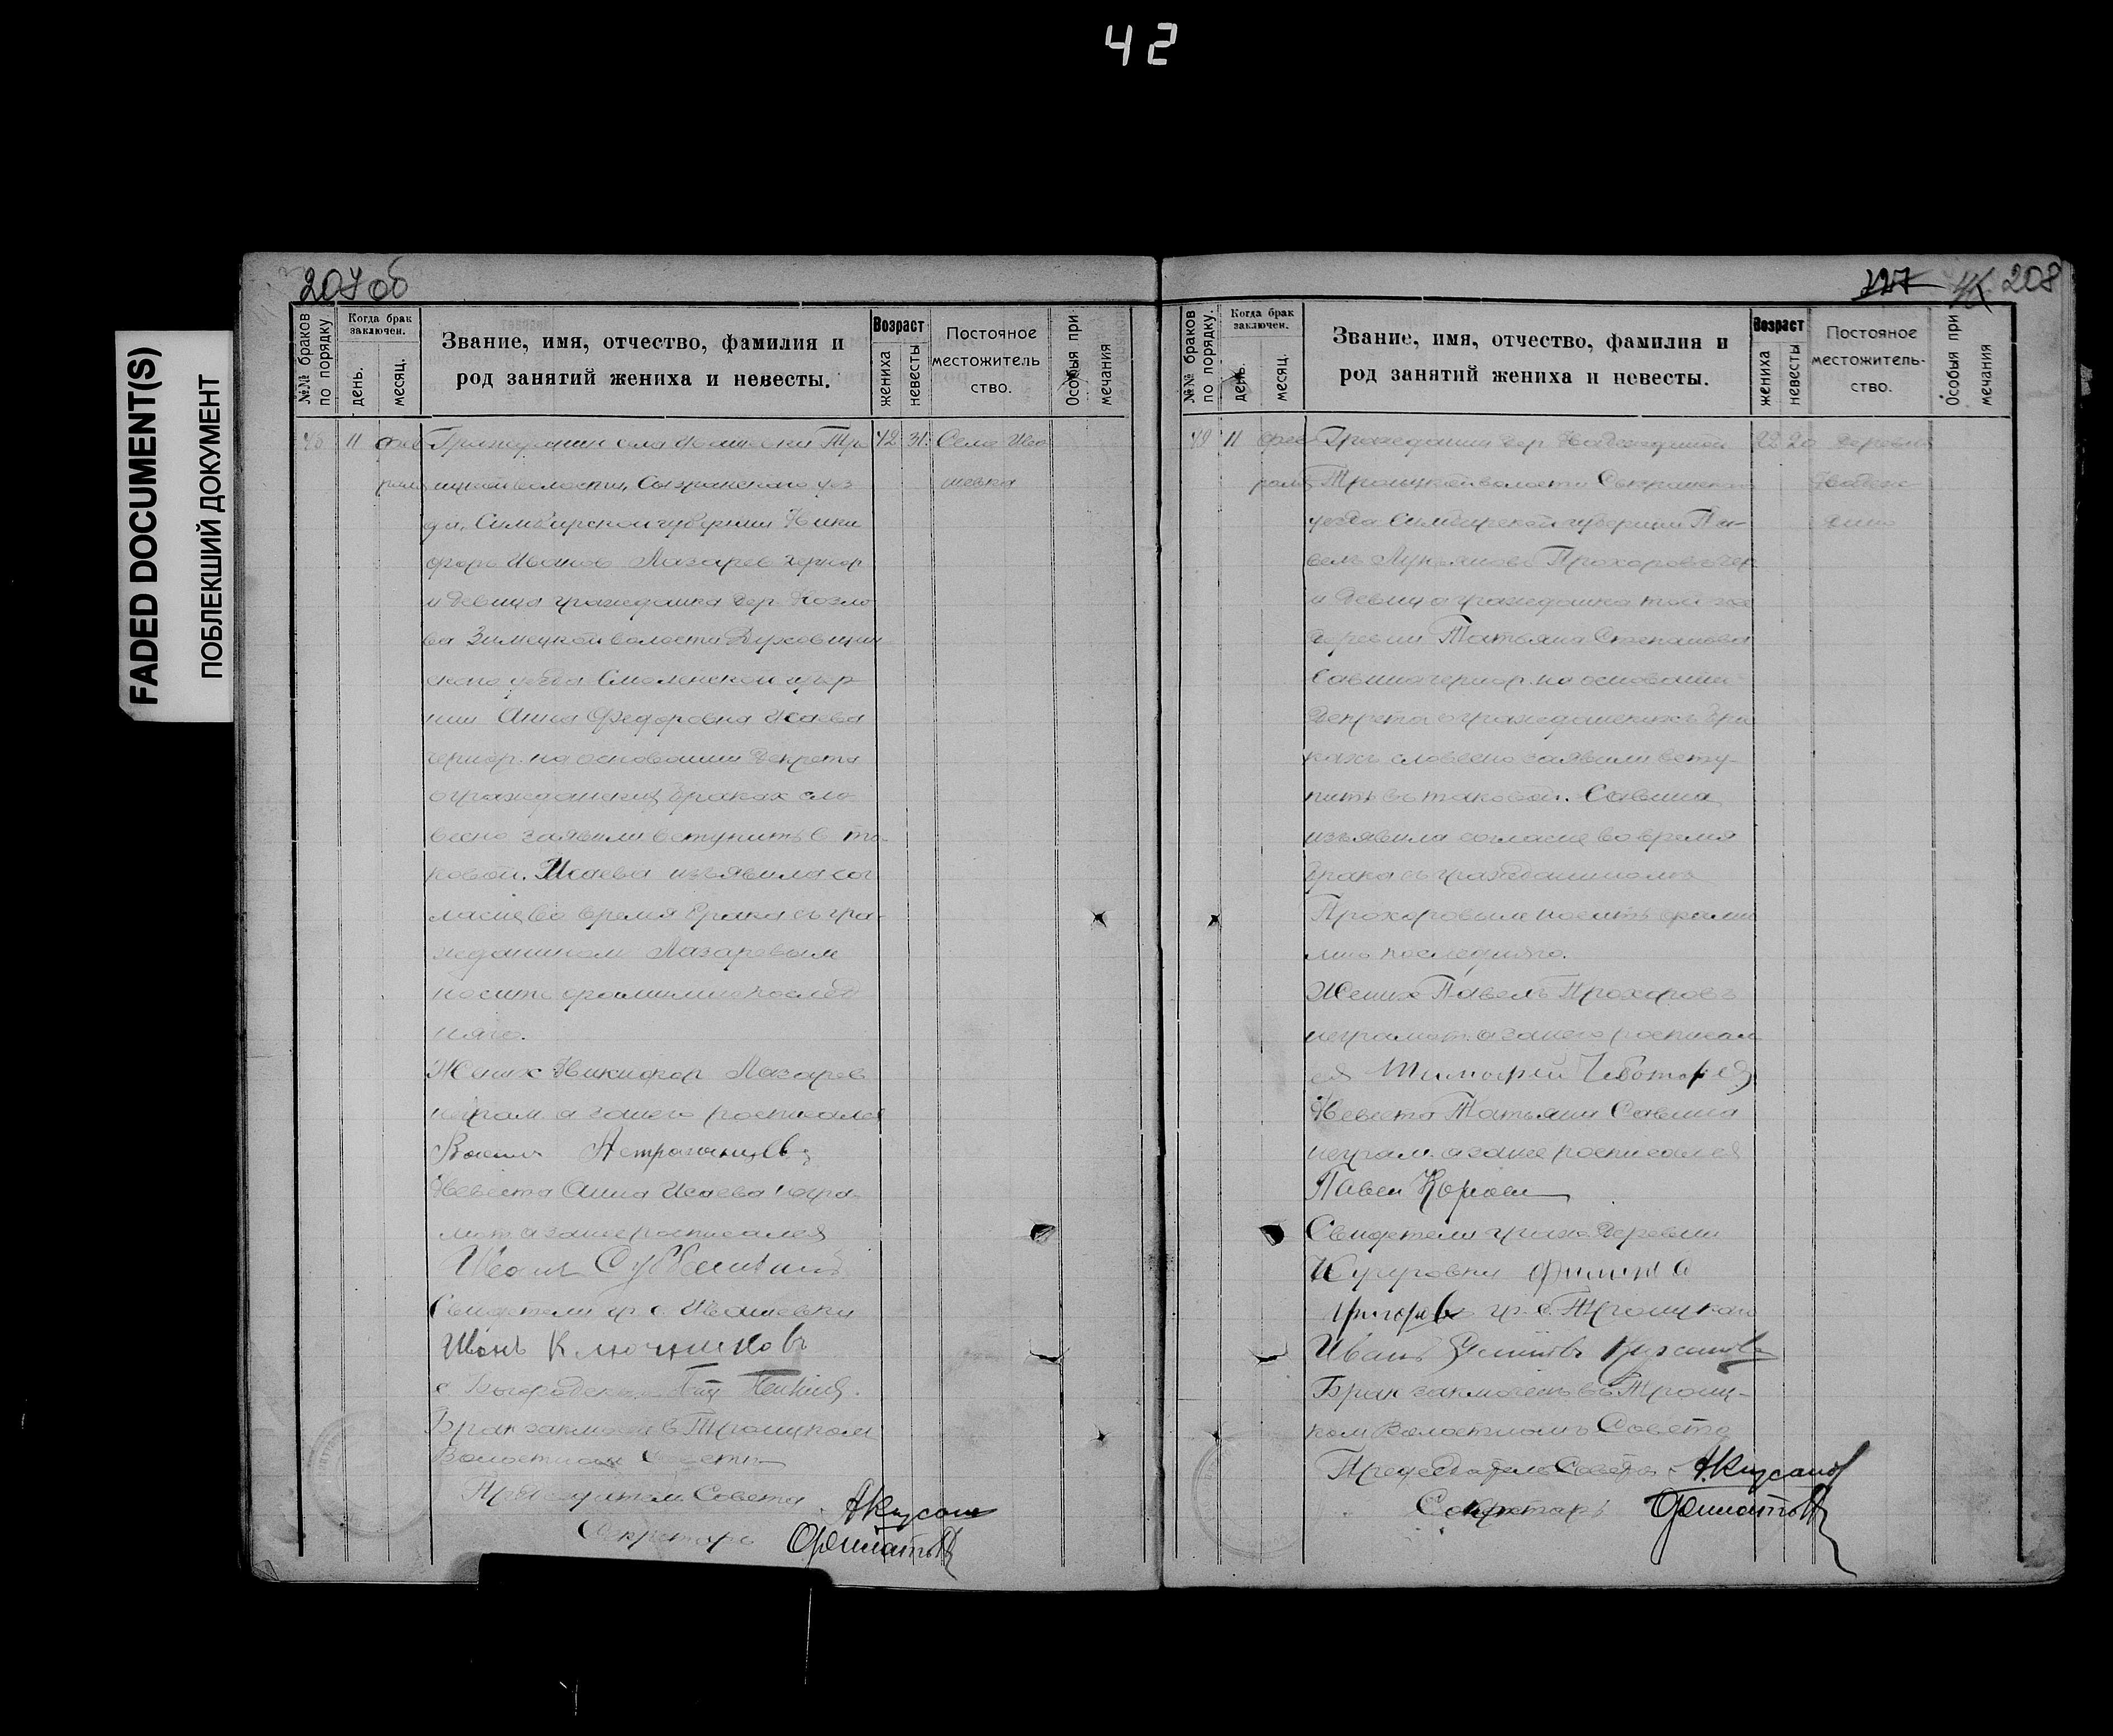 42
FADED DOCUMENT(S)
ПОБЛЕКШИЙ ДОКУМЕНТ
207об
№№ браков по порядку.
Когда брак заключен.
день.
месяц.
Звание, имя, отчество, фамилия и
род занятий жениха и невесты.
Возраст
жениха
невесты
Постояное
местожитель
ство.
Особыя при
мечания
11 фев Гражданин села Ивашевки Тро 42 31. Село Ива
раля ицкой волости, Сызранского уез шевка
да, Симбирской губернии Ники
фор Иванов Лазарев чернор
и девица гражданка дер. Козло
ва Зимецкой волости Духовщин
ского уезда Смоленской губер
нии Анна Федоровна Исаева
чернор. на основании Декрета
о гражданских браках сло
весно заявили вступить в та
ковой. Исаева изъявила сог
ласие во время брака съ гра-
жданином Лазаревым
носить фамилию послед
няго.
Жених Никифор Лазарев
неграм. а за него росписался
Невеста Анна Исаева негра
мот. а за нее росписался
Иван
Свидетели гр. с. Ивашевки
Иванъ Ключниковъ
с. Богородское
Брак заключен в Троицком
Волостном Совете
Председатель Совета
Секретарь
208
№№ браков по порядку.
Когда брак заключен.
день.
месяц.
Звание, имя, отчество, фамилия и
род занятий жениха и невесты.
Возраст
жениха
невесты
Постояное
местожитель-
ство.
Особыя при
мечания
49 11 фев Гражданин дер. Надеждиной 22 20 деревня
раля Троицкой волости Сызранского Надеж
уезда Симбирской губернии Па- дино
велъ Лукьяновъ Прохоровъ чер
и девица гражданка той же
деревни Татьяна Степанова
Савина чернор. на основании
Декрета о гражданскихъ бра
кахъ словесно заявили всту-
пить въ таковой. Савина
изъявила согласие во время
брака съ гражданиномъ
Прохоровым носить фами
лию последняго.
Жених Павелъ Прохоровъ
неграмот. а за него росписал
ся Тимофей Чеботарев
Невеста Татьяна Савина
неграм. а за нее росписался
Павел
Свидетели граж. деревни
гр. с. Троицкаго
Иванъ
Брак заключенъ въ Троиц-
ком Волостномъ Совете
Председатель Совета
Секретарь